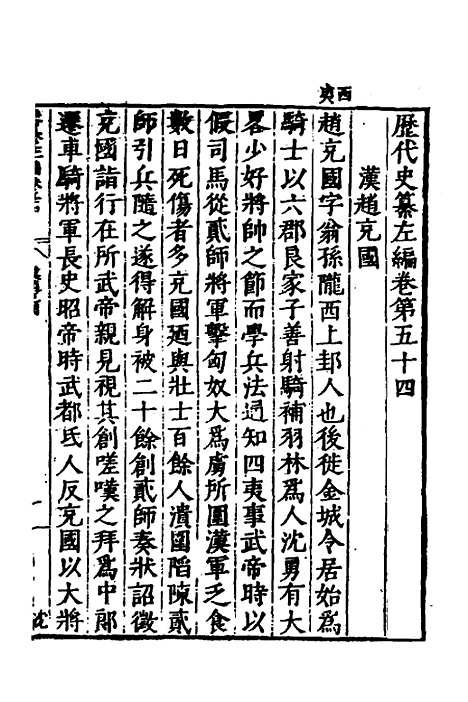 西夷
歷代史纂左編卷第五十四
漢趙充國
趙充國字翁孫隴西上邽人也後徙金城令居始爲
騎士以六郡良家子善射騎補羽林爲人沈勇有大
畧少好將帥之節而學兵法通知四夷事武帝時以
假司馬從貳師將軍擊匈奴大爲虜所圍漢軍乏食
數日死傷者多充國廼與壯士百餘人潰圍陷陳貳
師引兵隨之遂得解身被二十餘創貳師奏狀詔徵
充國詣行在所武帝親見視其創嗟嘆之拜爲中郞
遷車騎將軍長史昭帝時武都氐人反充國以大將